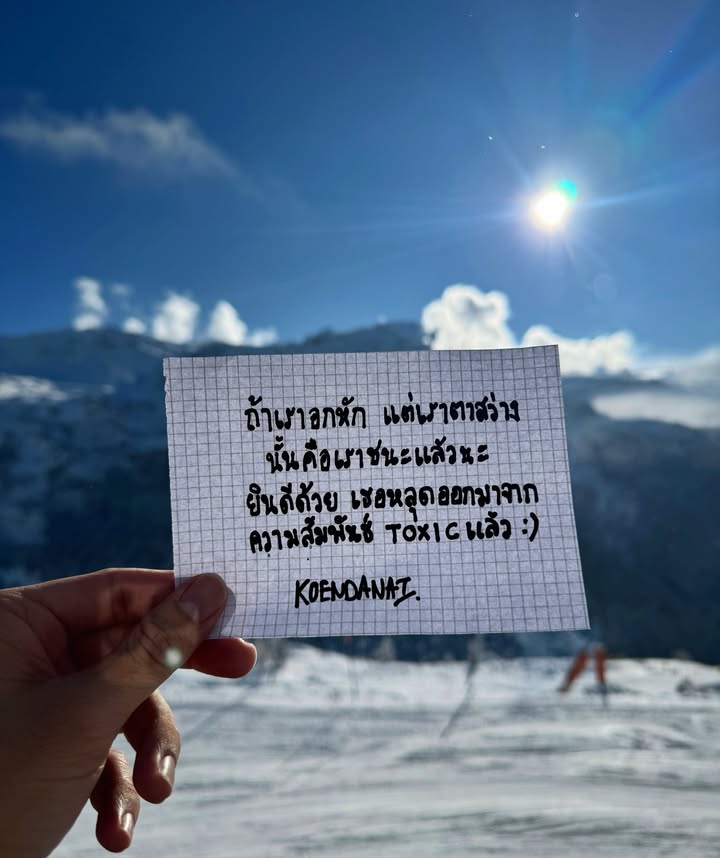 ถ้าเราอกหัก แต่เราตาสว่าง
นั้นคือเราชนะแล้วนะ
ยินดีด้วย เธอหลุดออกมาจาก
ความสัมพันธ์ TOXIC แล้ว :)
KOENDANAI.